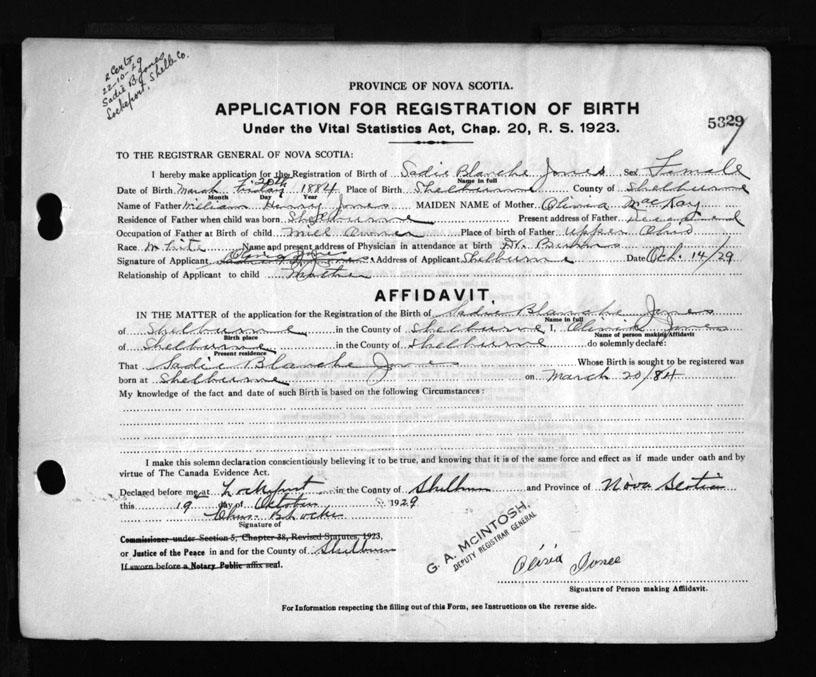 2 Certs
22-10-29
Sadie B Jones
Lockeport, Shelb. Co.
PROVINCE OF NOVA SCOTIA.
APPLICATION FOR REGISTRATION OF BIRTH
5329
Under the Vital Statistics Act, Chap. 20, R. S. 1923.
TO THE REGISTRAR GENERAL OF NOVA SCOTIA:
I hereby make application for the Registration of Birth of Sadie Blanche Jones Sex Female
Name in full
Date of Birth March Friday 20th 1884 Place of Birth Shelburne County of Shelburne
Month Day Year
Name of Father William Henry Jones MAIDEN NAME of Mother Olivia MacKay
Residence of Father when child was born Shelburne Present address of Father Deceased
Occupation of Father at Birth of child Mill Owner Place of birth of Father Upper Ohio
Race White Name and present address of Physician in attendance at birth Dr. Burns
Signature of Applicant Olivia Jones Address of Applicant Shelburne Date Oct. 14/29
Relationship of Applicant to child Mother
AFFIDAVIT.
IN THE MATTER of the application for the Registration of the Birth of Sadie Blanche Jones
Name in full
of Shelburne in the County of Shelburne I, Olivia Jones
Birth place Name of person making Affidavit
of Shelburne in the County of Shelburne do solemnly declare:
Present residence
That Sadie Blanche Jones Whose Birth is sought to be registered was
born at Shelburne on March 20/84
My knowledge of the fact and date of such Birth is based on the following Circumstances:
I make this solemn declaration conscientiously believing it to be true, and knowing that it is of the same force and effect as if made under oath and by
virtue of The Canada Evidence Act.
Declared before me at Lockeport in the County of Shelburne and Province of Nova Scotia
this 19 day of October 1929
Chas. B Locke
Signature of
Commissioner under Section 5, Chapter 38, Revised Statutes, 1923,
or Justice of the Peace in and for the County of Shelburne
If sworn before a Notary Public affix seal.
G. A. McINTOSH,
DEPUTY REGISTRAR GENERAL
Olivia Jones
Signature of Person making Affidavit.
For Information respecting the filling out of this Form, see Instructions on the reverse side.